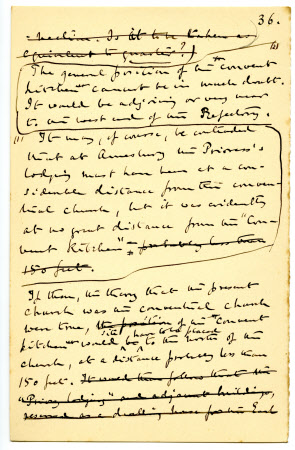 36.
section. Is it to be taken as
equivalent to quarter?)
The general position of the "Convent
Kitchen" cannot be in much doubt.
It would be adjoining or very near
to the west end of the Refectory.
It may, of course, be contended
that at Amesbury the Prioress's
lodging must have been at a con-
siderable distance from the conven-
tual church, but it was evidently
at no great distance from the "Con-
vent Kitchen" – probably less than
150 feet.
If then, the theory that the present
church was the conventual church
were true, the position of the "Convent
site have to be placed
Kitchen" would be to the north of the
church, at a distance probably less than
150 feet. It would then follow that the
"Priory lodging" and adjacent buildings,
reserved as a dwelling house for the Earl